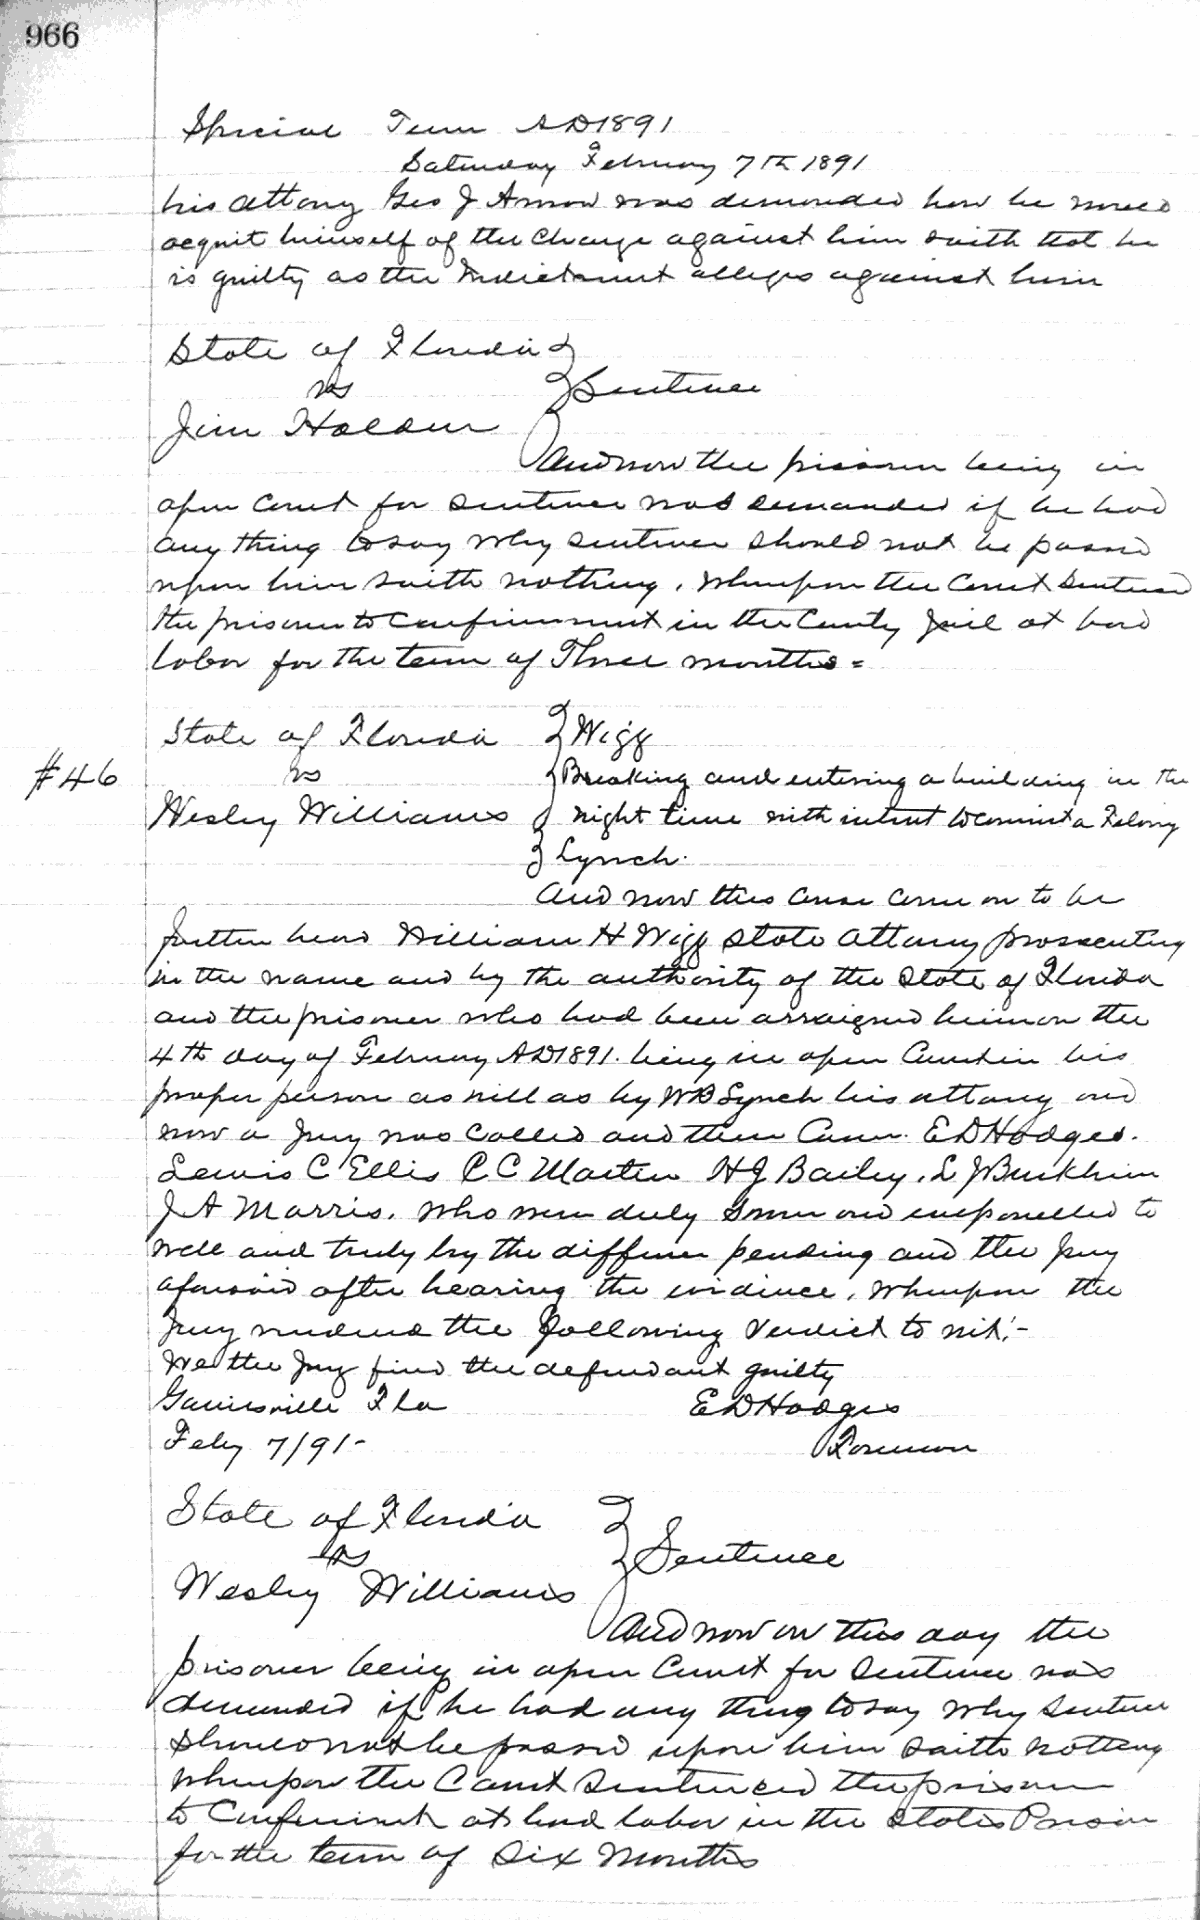 966
Special Term AD 1891
Saturday February 7th 1891
his attorny Geo J Arnow was demanded how he would
acquit himself of the Charge against him saith that he
is guilty as the Indictment alleges against him
State of Florida
vs
Sentence
Jim Holden
And now the prisoner being in
open Court for sentence was demanded if he had
any thing to say why sentence should not be passed
upon him saith nothing. Whereupon the Court Sentenced
the prisoner to Confinement in the County Jail at hard
labor for the term of Three months =
State of Florida } Wigg
#46 vs } Breaking and entering a building in the
Wesley Williams } night time with intent to commit a Felony
} Lynch.
And now this cause come on to be
further heard William H Wigg State Attorny prosecuting
in the name and by the authority of the State of Florida
and the prisoner who had been arraigned herein on the
4th day of February AD 1891. being in open Court in his
proper person as well as by WB Lynch his attorny and
now a Jury was Called and then Came. E D Hodges.
Lewis C Ellis C C Martin H J Bailey. L J Burkhim
J A Morris. Who were duly Sworn and empanelled to
well and truly try the difference pending and the jury
aforesaid after hearing the evidence, Whereupon the
Jury rendered the following Verdict to wit:-
We the Jury find the defendant guilty
Gainesville Fla E D Hodges
Feby 7/91- Foreman
State of Florida
vs
Sentence
Wesley Williams
And now on this day the
prisoner being in open Court for Sentence was
demanded if he had any thing to say why Sentence
Should not be passed upon him Saith nothing
Whereupon the Court Sentenced the prisoner
to Confinement at hard labor in the States Prison
for the term of Six Months